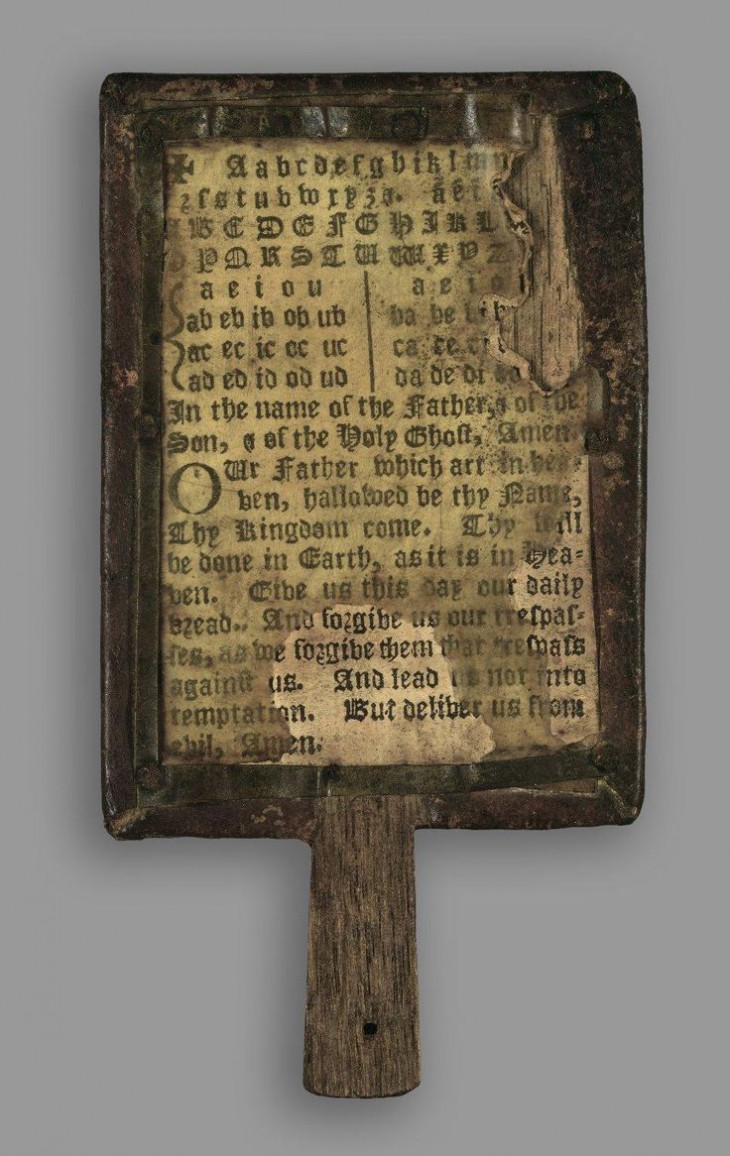 ✠ Aabcdefghiklmn
ꝛſstubwxyz⁊. áéi
BCDEFGHIKL
PQRSTUWXYZ
a e i o u a e i o
ab eb ib ob ub ba be bi b
ac ec ic oc uc ca ce ci
ad ed id od ud da de di
In the name of the Father, ⁊ of the
Son, ⁊ of the Holy Ghoſt, Amen.
OUr Father which art in hea-
ven, hallowed be thy Name,
Thy Kingdom come. Thy will
be done in Earth, as it is in Hea-
ven. Give us this day our daily
bread. And forgive us our treſpaſ-
ſes, as we forgive them that treſpaſs
againſt us. And lead us not into
temptation. But deliver us from
evil, Amen.